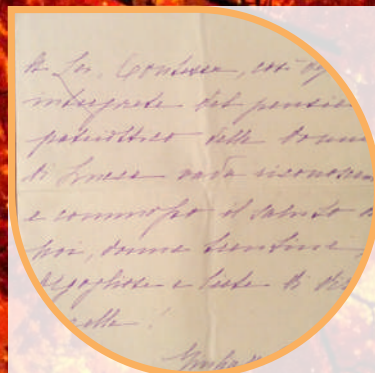 A Lei, Contessa, così
interprete del pensie
patriottico delle donne
di Lucca vada riconoscen
e commosso il saluto
noi, donne trentine,
orgogliose e liete di